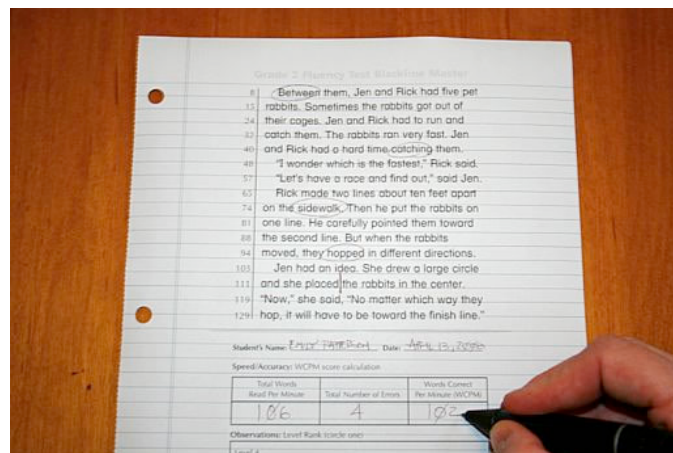 Grade 2 Fluency Test Blackline Master
8 Between them, Jen and Rick had five pet
15 rabbits. Sometimes the rabbits got out of
24 their cages. Jen and Rick had to run and
32 catch them. The rabbits ran very fast. Jen
40 and Rick had a hard time catching them.
48 "I wonder which is the fastest," Rick said.
57 "Let's have a race and find out," said Jen.
65 Rick made two lines about ten feet apart
74 on the sidewalk. Then he put the rabbits on
81 one line. He carefully pointed them toward
88 the second line. But when the rabbits
94 moved, they hopped in different directions.
103 Jen had an idea. She drew a large circle
111 and she placed the rabbits in the center.
119 "Now," she said, "No matter which way they
129 hop, it will have to be toward the finish line."
Student's Name: EMILY PATERSON Date: APRIL 13,
Speed/Accuracy: WCPM score calculation
Total Words Read Per Minute
Total Number of Errors
Words Correct Per Minute (WCPM)
106 4 102
Observations: Level Rank (circle one)
Level 4